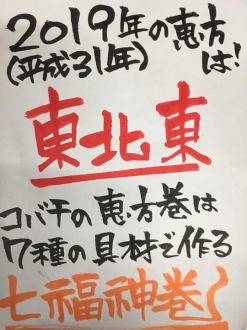 2019年の恵方
(平成31年)は!
東北東
コバチの恵方巻は
7種の具材で作る
七福神巻